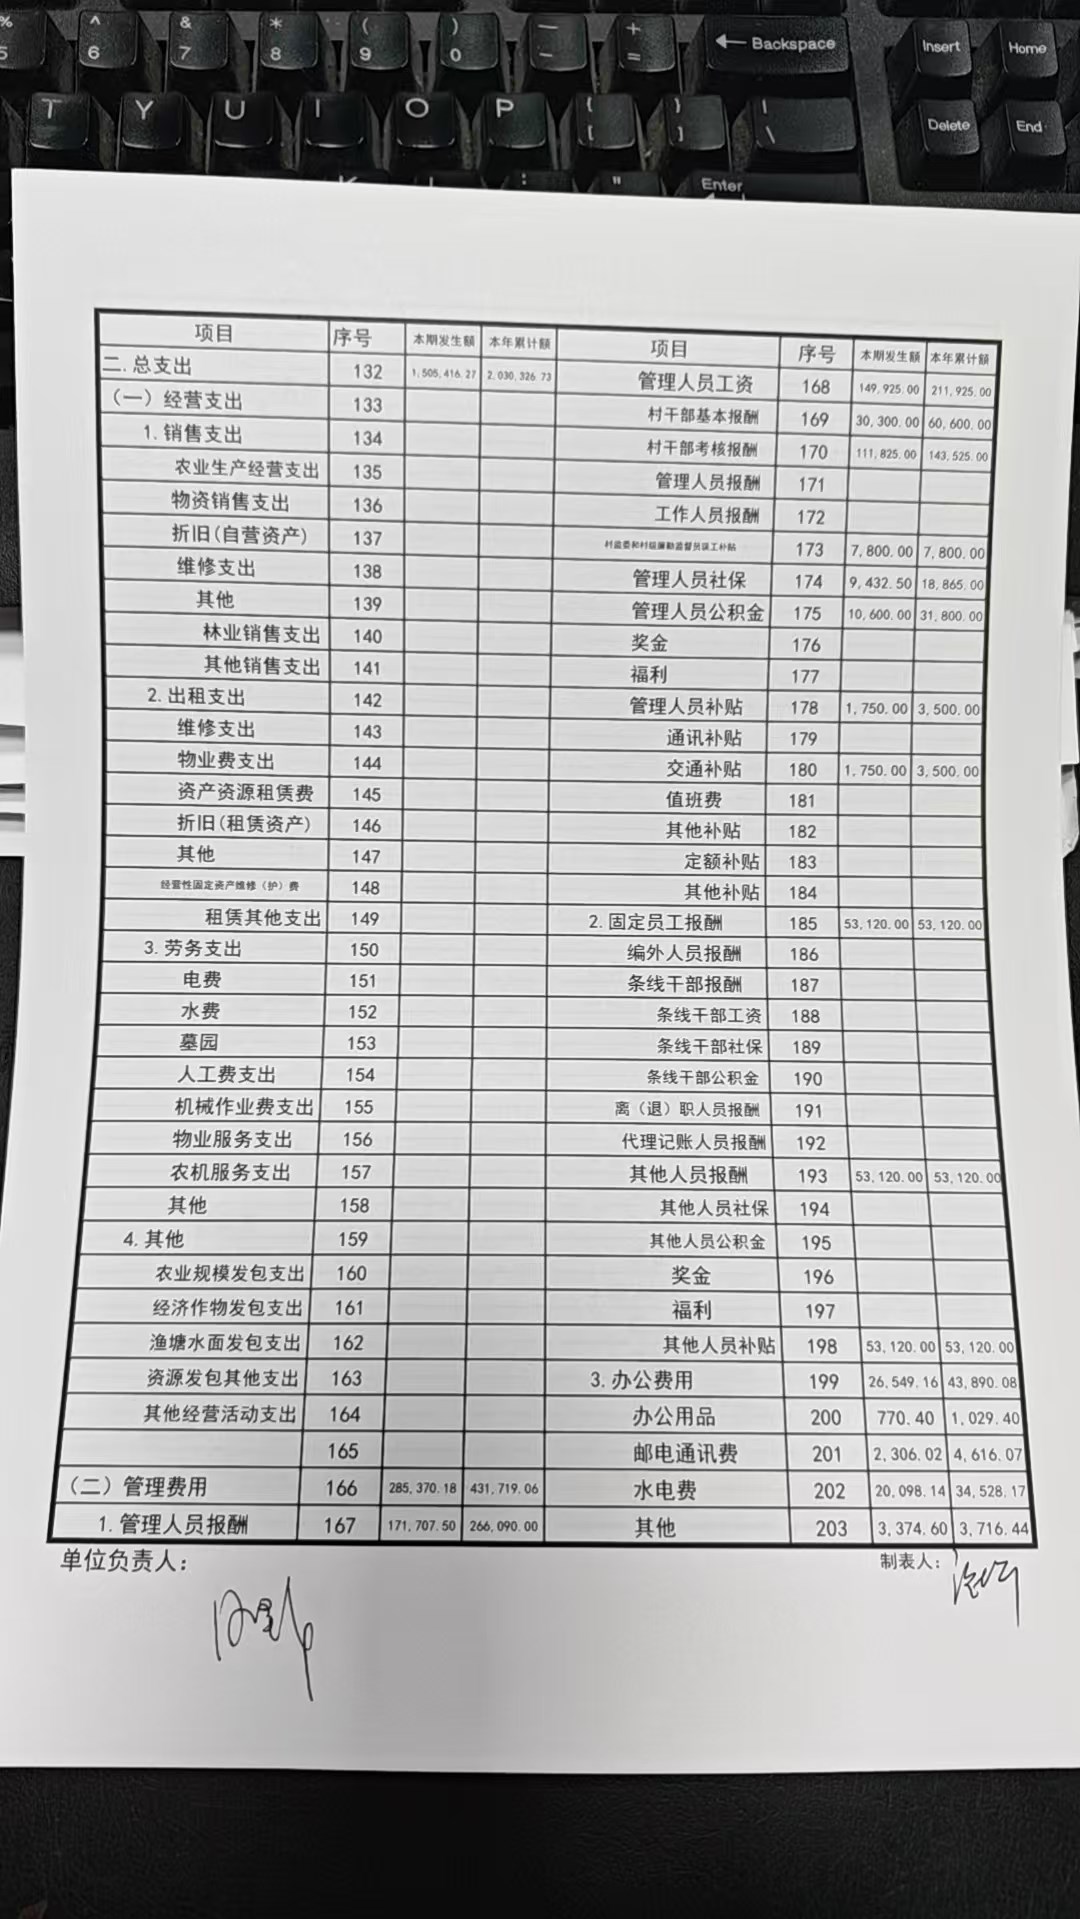 % ^ & * ( ) — +
5 6 7 8 9 0 - = ← Backspace Insert Home
T Y U I O P { [ } ] | \ Delete End
: " Enter
项目 序号 本期发生额 本年累计额 项目 序号 本期发生额 本年累计额
二.总支出 132 1,505,416.27 2,030,326.73 管理人员工资 168 149,925.00 211,925.00
(一)经营支出 133 村干部基本报酬 169 30,300.00 60,600.00
1.销售支出 134 村干部考核报酬 170 111,825.00 143,525.00
农业生产经营支出 135 管理人员报酬 171
物资销售支出 136 工作人员报酬 172
折旧(自营资产) 137 村监委和村组廉勤监督员误工补贴 173 7,800.00 7,800.00
维修支出 138 管理人员社保 174 9,432.50 18,865.00
其他 139 管理人员公积金 175 10,600.00 31,800.00
林业销售支出 140 奖金 176
其他销售支出 141 福利 177
2.出租支出 142 管理人员补贴 178 1,750.00 3,500.00
维修支出 143 通讯补贴 179
物业费支出 144 交通补贴 180 1,750.00 3,500.00
资产资源租赁费 145 值班费 181
折旧(租赁资产) 146 其他补贴 182
其他 147 定额补贴 183
经营性固定资产维修(护)费 148 其他补贴 184
租赁其他支出 149 2.固定员工报酬 185 53,120.00 53,120.00
3.劳务支出 150 编外人员报酬 186
电费 151 条线干部报酬 187
水费 152 条线干部工资 188
墓园 153 条线干部社保 189
人工费支出 154 条线干部公积金 190
机械作业费支出 155 离(退)职人员报酬 191
物业服务支出 156 代理记账人员报酬 192
农机服务支出 157 其他人员报酬 193 53,120.00 53,120.00
其他 158 其他人员社保 194
4.其他 159 其他人员公积金 195
农业规模发包支出 160 奖金 196
经济作物发包支出 161 福利 197
渔塘水面发包支出 162 其他人员补贴 198 53,120.00 53,120.00
资源发包其他支出 163 3.办公费用 199 26,549.16 43,890.08
其他经营活动支出 164 办公用品 200 770.40 1,029.40
165 邮电通讯费 201 2,306.02 4,616.07
(二)管理费用 166 285,370.18 431,719.06 水电费 202 20,098.14 34,528.17
1.管理人员报酬 167 171,707.50 266,090.00 其他 203 3,374.60 3,716.44
单位负责人: 制表人: